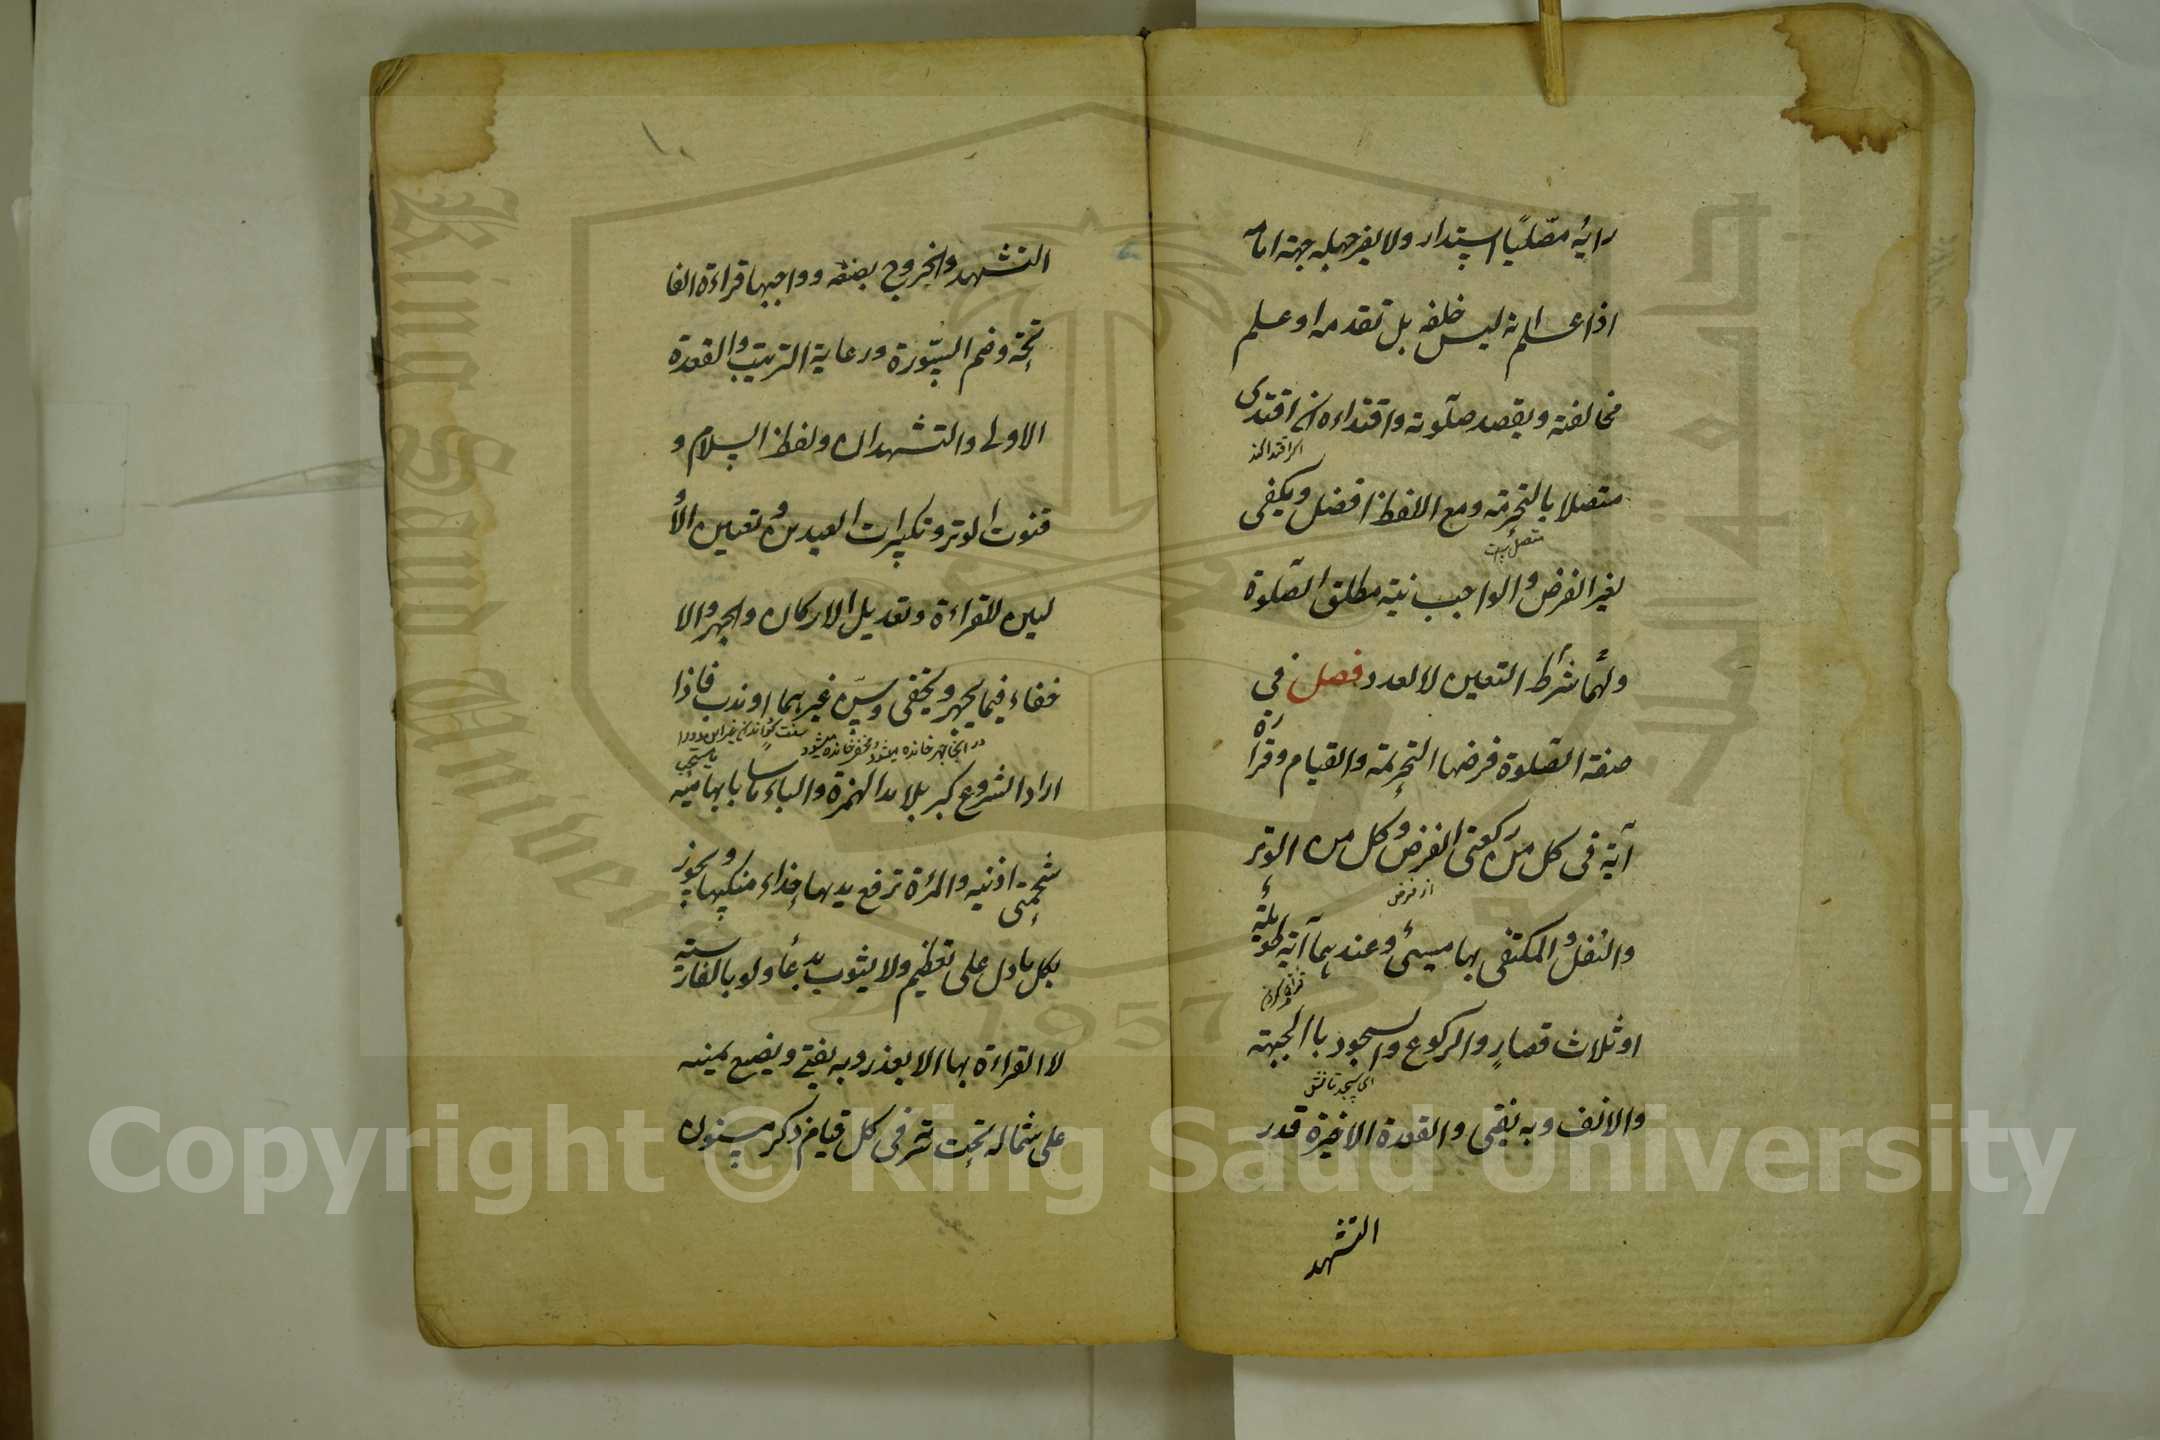 رايه مصليا استدار ولا يضر جهله جهة امامه
اذا علم انه ليس خلفه بل تقدمه او علم
مخالفته ويقصد صلوته واقتداءه ان اقتدى
اكر اقتدا كند
متصلا بالتحريمة ومع اللفظ افضل ويكفى
لغير الفرض والواجب نية مطلق الصلوة
ولهما شرط التعيين لا العدد فصل فى
صفة الصلوة فرضها التحريمة والقيام وقراءة
آية فى كل من ركعتى الفرض وكل من الوتر
از فرض
والنفل والمكتفى بها مسيئ وعندهما آية طويلة
او ثلاث قصار والركوع والسجود باالجبهة
والانف وبه يفتى والقعدة الاخيرة قدر
التشهد
١٠
التشهد والخروج بصنعه وواجبها قراءة الفا
تحة وضم السورة ورعاية الترتيب والقعدة
الاولى والتشهدان ولفظ السلام و
قنوت الوتر وتكبيرات العيدين وتعيين الأو
ليين للقراءة وتعديل الاركان والجهر والا
خفاء فيما يجهر ويخفى وسن غيرهما او ندب فاذا
در انجا جهر خانده ميشود و مخفى خانده ميشود
اراد الشروع كبر بلا مد الهمزة والباء ماسا بابهاميه
شحمتى اذنيه والمرءة ترفع يديها حذاء منكبيها ويجوز
بكل ما دل على تعظيم ولا يشوب بدعأ ولو بالفارسية
لا القراءة بها الا بعذر وبه يفتى ويضع يمينه
على شماله تحت سرته فى كل قيام ذكر مسنون
Copyright © King Saud University
King Saud University
1957
جامعة الملك